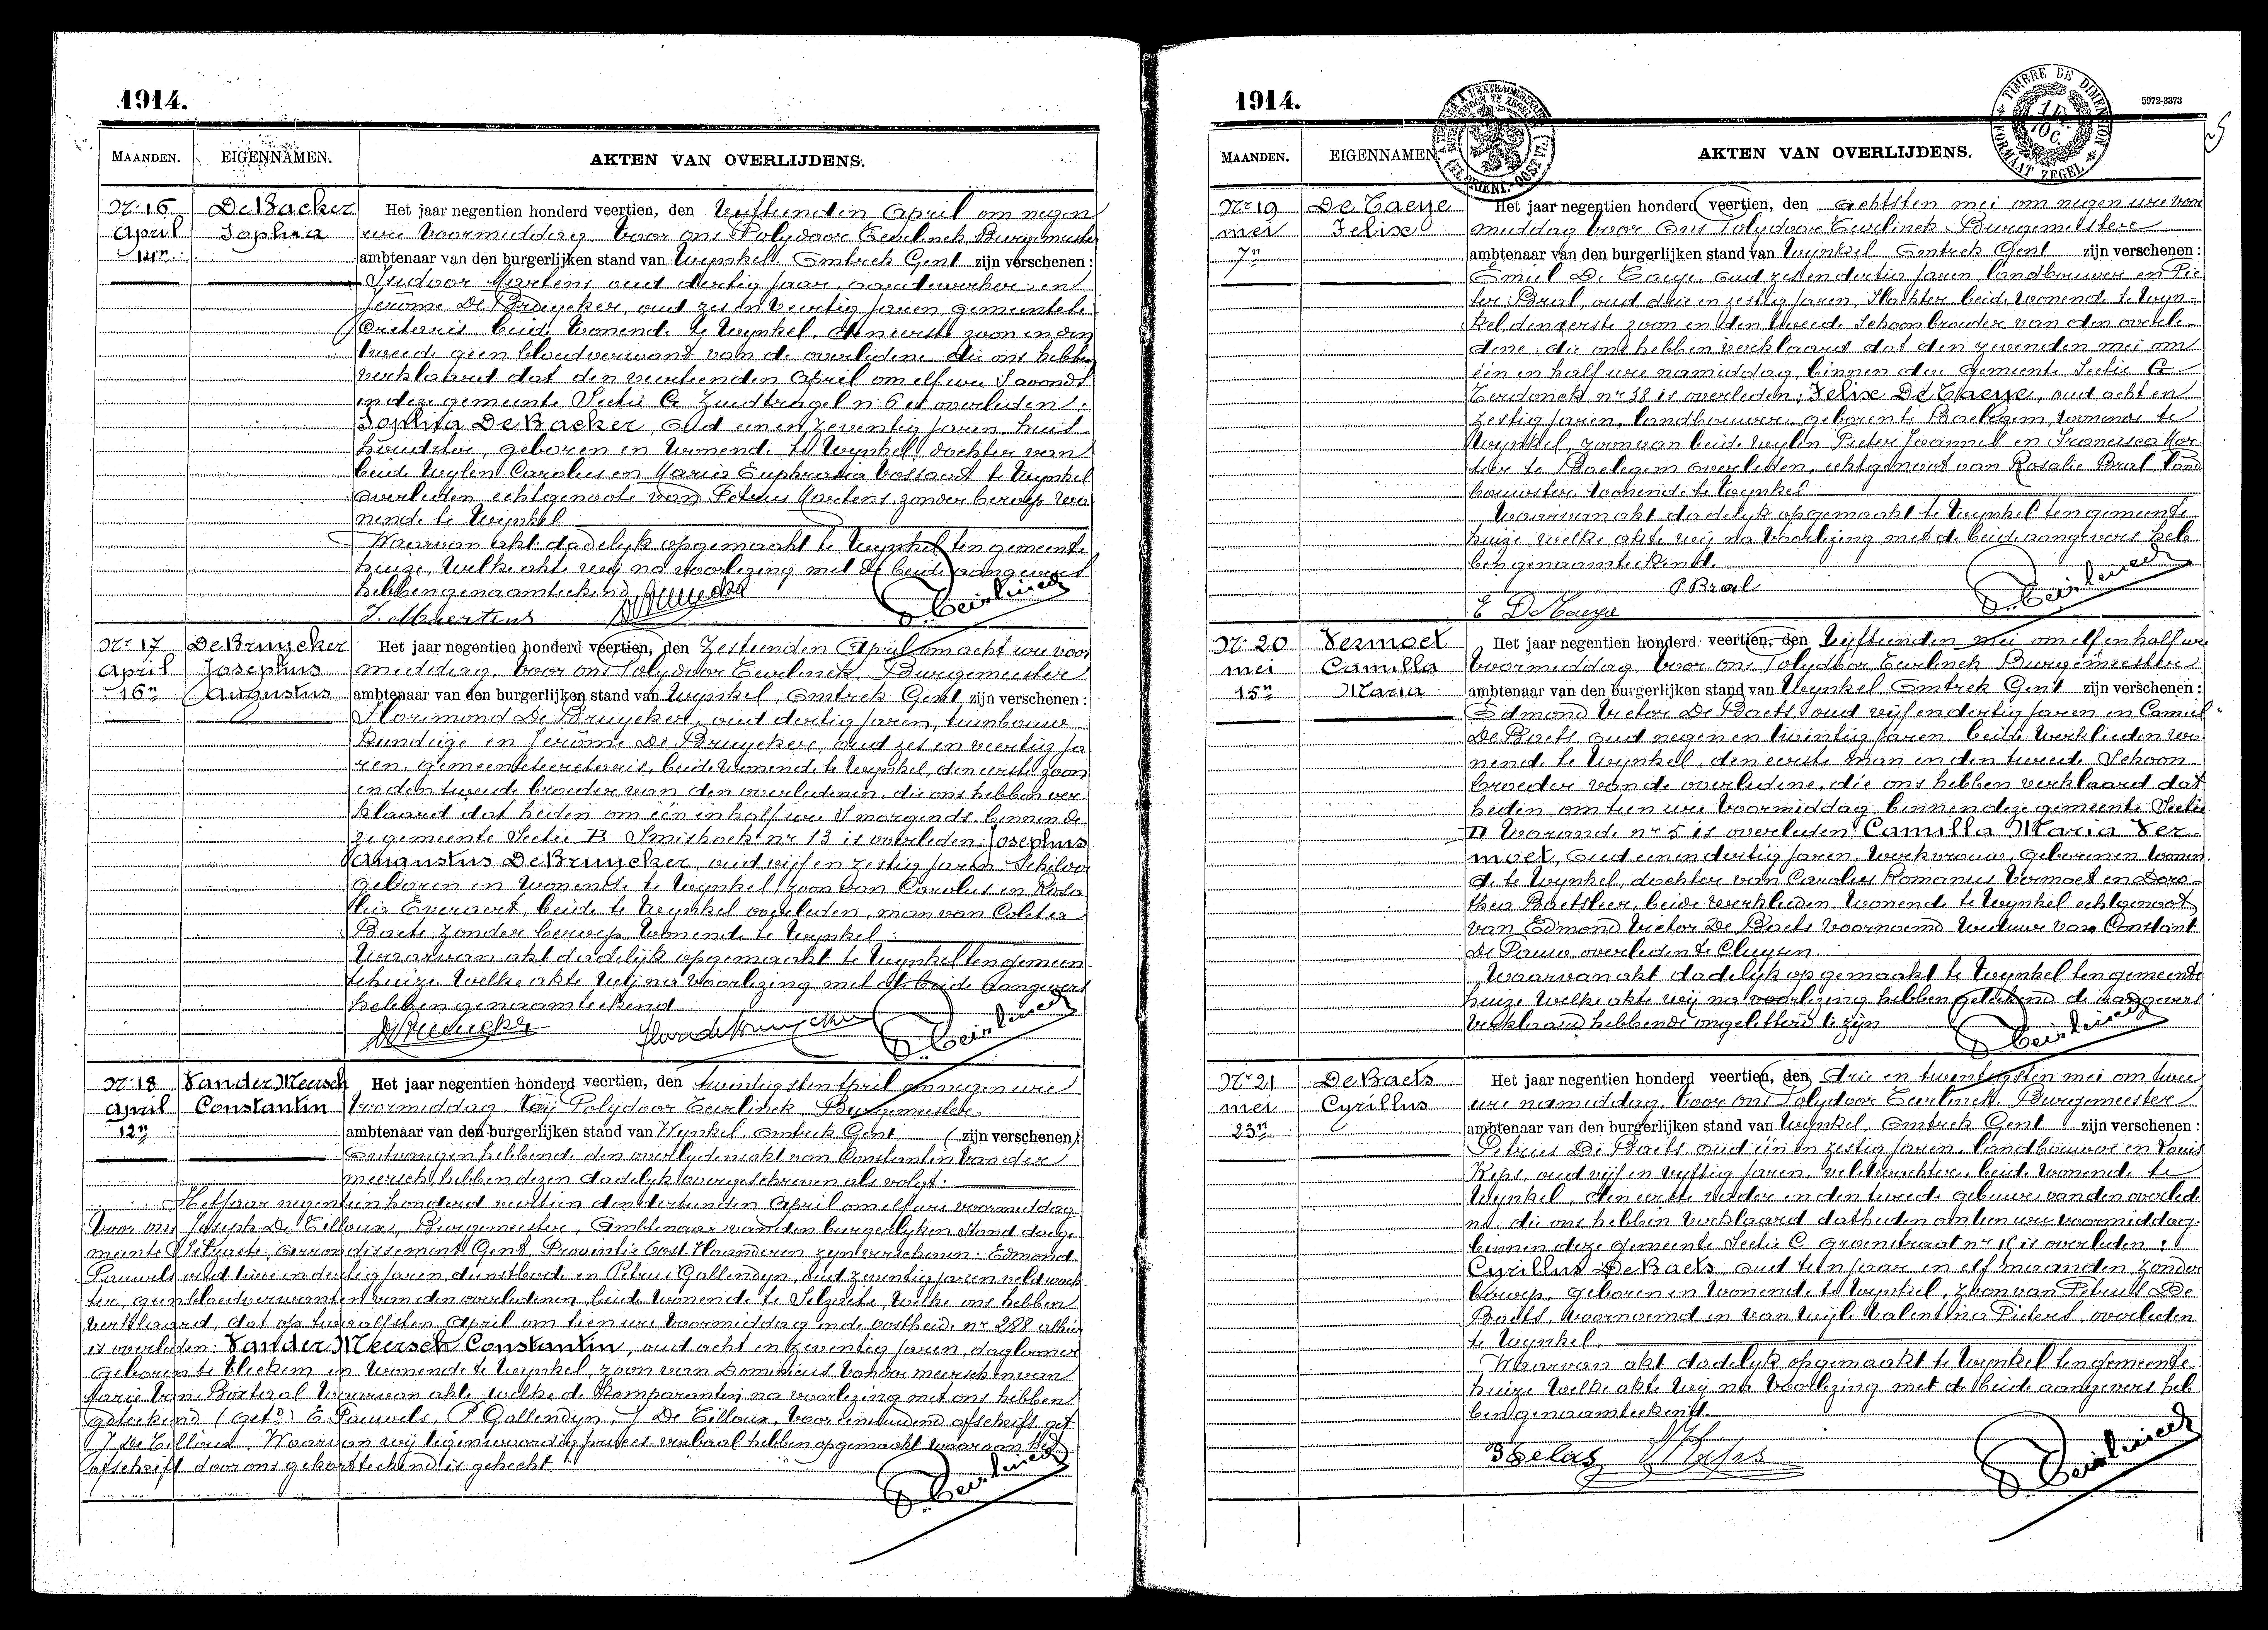 1914.
MAANDEN. EIGENNAMEN. AKTEN VAN OVERLIJDENS.
Nr. 16 De Backer Het jaar negentien honderd veertien, den vijftienden April om negen
April Sophia ure voormiddag voor ons Polydoor Teirlinck Burgemeester
14n ambtenaar van den burgerlijken stand van Wynkel Omtrek Gent zijn verschenen:
Isidoor Martens oud dertig jaar en
Jerôme De Bruycker, oud zes en veertig jaren gemeentese
cretaris beide wonende te Wynkel den eerste zoon en den
tweede geen bloedverwant van de overledene die ons hebben
verklaard dat den veertienden April om elf ure s'avonds
in deze gemeente Sectie G Zuidtragel nr 6 is overleden:
Sophia De Backer, oud een en zeventig jaren, huis
houdster, geboren en wonende te Wynkel dochter van
beide wylen Carolus en Maria Euphrasia Vossaert te Wynkel
overleden echtgenoote van Petrus Martens zonder beroep wo
nende te Wynkel
Waarvan akt dadelyk opgemaakt te Wynkel ten gemeente
huize, welke akte wij na voorlezing met de beide aangevers
hebben genaamteekend
J. Maertens De Bruycker P. Teirlinck
Nr. 17 De Bruycker Het jaar negentien honderd veertien, den Zestienden April om acht ure voor
April Josephus middag voor ons Polydoor Teirlinck Burgemeester
16n Augustus ambtenaar van den burgerlijken stand van Wynkel, Omtrek Gent zijn verschenen:
Florimond De Bruycker, oud dertig jaren, tuinbouw
kundige en Jerôme De Bruycker, oud zes en veertig ja
ren, gemeentesecretaris, beide wonende te Wynkel, den eerste zoon
en den tweede broeder van den overledenen, die ons hebben ver
klaard dat heden om één en half ure s'morgends binnen de
ze gemeente Sectie B Smishoek nr 13 is overleden: Josephus
Augustus De Bruycker, oud vijf en zestig jaren Schilder
geboren en wonende te Wynkel, zoon van Carolus en Rosa
lia Everaert, beide te Wynkel overleden, man van Coleta
Baete, zonder beroep wonende te Wynkel
Waarvan akt dadelijk opgemaakt te Wynkel ten gemeen
tehuize welke akte wij na voorlezing met de beide aangevers
hebben genaamteekend
De Bruycker Flor de Bruycker P. Teirlinck
Nr. 18 Vander Meersch Het jaar negentien honderd veertien, den twintigsten April om negen ure
April Constantin voormiddag Wij Polydoor Teirlinck, Burgemeester
12n ambtenaar van den burgerlijken stand van Wynkel omtrek Gent (zijn verschenen)
Ontvangen hebbende den overlydensakt van Constantin Van der
meersch hebben dezen dadelyk overgeschreven als volgt:
Het jaar negentien honderd veertien den dertienden April om elf ure voormiddag
voor ons Joseph De Tilloux, Burgemeester, Ambtenaar van den burgerlyken Stand der ge
meente Selzaete, arrondissement Gent, Provintie Oost Vlaanderen zyn verschenen: Edmond
Pauwels oud twee en dertig jaren, dienstbode en Petrus Gallendyn, oud zeventig jaren veldwach
ter, geen bloedverwanten van den overledenen, beide wonende te Selzaete, welke ons hebben
verklaard, dat op twaalfsten April om tien ure voormiddag in de oostheide nr 288 alhier
is overleden: Vander Meersch Constantin, oud acht en zeventig jaren, daglooner
geboren te en wonende te Wynkel, zoon van Dominicus Vander meersch en van
Marie Van Portaal Waarvan akte welke de Komparanten na voorlezing met ons hebben
geteekend (get.d) E Pauwels, P Gallendyn, J De Tilloux, voor eensluidend afschrift get
J De Tilloux. Waarvan wij tegenwoordig proces-verbaal hebben opgemaakt waaraan het
afschrift door ons gekantteekend is gehecht
P. Teirlinck
1914.
TIMBRE DE DIMENSION
1 FR. 10 C.
FORMAAT ZEGEL
5972-3373
MAANDEN. EIGENNAMEN. AKTEN VAN OVERLIJDENS.
Nr 19 De Taeye Het jaar negentien honderd veertien, den achtsten mei om negen ure voor
mei Felix middag voor Ons Polydoor Teirlinck Burgemeester
7n ambtenaar van den burgerlijken stand van Wynkel Omtrek Gent zijn verschenen:
Emiel De Taeye oud zes en dertig jaren landbouwer en Pie
ter Bral, oud drie en zestig jaren, Slachter beide wonende te Wyn-
kel den eerste zoon en den tweede Schoonbroeder van den overle
dene, die ons hebben verklaard dat den zevenden mei om
één en half ure namiddag binnen deze gemeente Sectie G
Terdonck nr 38 is overleden: Felix De Taeye, oud acht en
zestig jaren, landbouwer geboren te Baelegem, wonende te
Wynkel, zoon van beide wylen Pieter Joannes en Francisca Mor
tier te Baelegem overleden, echtgenoot van Rosalie Bral, land
bouwster wonende te Wynkel
Waarvan akt dadelyk opgemaakt te Wynkel ten gemeente
huize welke akte wij na voorlezing met de beide aangevers heb
ben genaamteekend.
P Bral
E De Taeye P. Teirlinck
Nr. 20 Vermoet Het jaar negentien honderd veertien, den vijftienden mei om elf en half ure
mei Camilla voormiddag voor ons Polydoor Teirlinck Burgemeester
15n Maria ambtenaar van den burgerlijken stand van Wynkel, Omtrek Gent zijn verschenen:
Edmond Victor De Baets, oud vijf en dertig jaren en Camiel
De Baets, oud negen en twintig jaren, beide werklieden wo
nende te Wynkel, den eerste man en den tweede Schoon
broeder van de overledene, die ons hebben verklaard dat
heden om tien ure voormiddag binnen deze gemeente Sectie
D Warande nr 5 is overleden: Camilla Maria Ver
moet, oud een en dertig jaren, werkvrouw, geboren en wonen
de te Wynkel, dochter van Carolus Romanus Vermoet en Doro-
thea Baetsleer, beide werklieden wonende te Wynkel echtgenoot
van Edmond Victor De Baets voornoemd weduwe van Constant
De Pauw overleden te Cluysen
Waarvan akt dadelijk opgemaakt te Wynkel ten gemeente
huize welke akte wij na voorlezing hebben geteekend de aangevers
verklaard hebbende ongeletterd te zijn
P. Teirlinck
Nr 21 De Baets Het jaar negentien honderd veertien, den drie en twintigsten mei om twee
mei Cyrillus ure namiddag voor Ons Polydoor Teirlinck Burgemeester
23n ambtenaar van den burgerlijken stand van Wynkel, Omtrek Gent zijn verschenen:
Petrus De Baets oud één en zestig jaren, landbouwer en Louis
Kips, oud vijf en vyftig jaren, veldwachter, beide wonende te
Wynkel, den eerste vader en den tweede gebuur van den overlede
ne, die ons hebben verklaard dat heden om tien ure voormiddag
binnen deze gemeente Sectie C Groenstraat nr 16 is overleden:
Cyrillus De Baets oud tien jaar en elf maanden zonder
beroep, geboren en wonende te Wynkel, zoon van Petrus De
Baets, voornoemd en van Wyle Valentina Pieters, overleden
te Wynkel.
Waarvan akt dadelijk opgemaakt te Wynkel ten gemeente
huize welke akte Wij na voorlezing met de beide aangevers heb
ben genaamteekend.
Kips P. Teirlinck